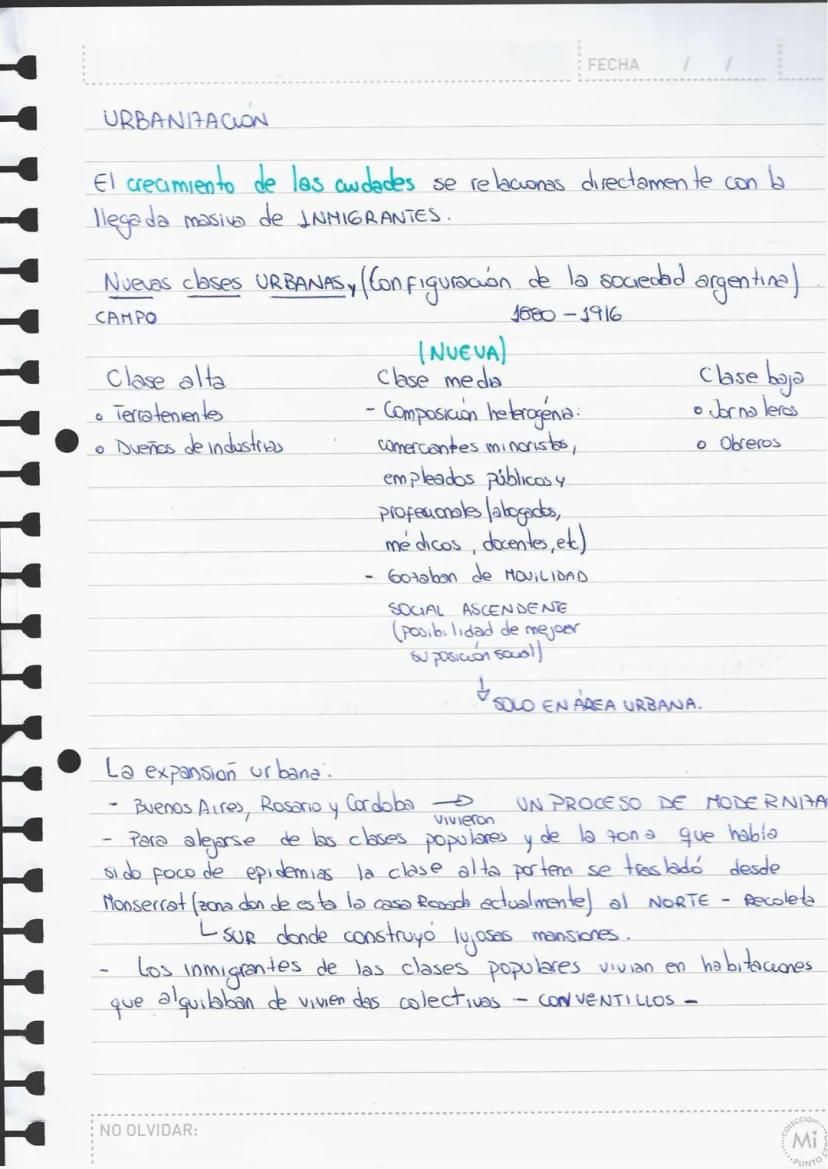 FECHA / /
URBANIZACIÓN
El crecimiento de las ciudades se relacionas directamente con la
llegada masiva de INMIGRANTES.
Nuevas clases URBANAS y (Configuración de la sociedad argentina)
CAMPO 1880 - 1916
(NUEVA)
Clase alta Clase media Clase baja
o Terratenientes - Composición heterogénia: o Jornaleros
o Dueños de industrias comerciantes minoristas, o Obreros
empleados públicos y
profesionales (abogados,
médicos, docentes, etc)
- Gozaban de MOVILIDAD
SOCIAL ASCENDENTE
(posibilidad de mejorar
su posición social)
↓ SOLO EN ÁREA URBANA.
La expansión urbana:
- Buenos Aires, Rosario y Cordoba → UN PROCESO DE MODERNIZA
vivieron
- Para alejarse de las clases populares y de la zona que había
sido foco de epidemias la clase alta porteña se trasladó desde
Monserrat (zona donde esta la casa Rosada actualmente) al NORTE - Recoleta
└ SUR donde construyó lujosas mansiones.
- Los inmigrantes de las clases populares vivian en habitaciones
que alquilaban de viviendas colectivas - CONVENTILLOS -
NO OLVIDAR:
COLECCIÓN
Mi
PUNTO